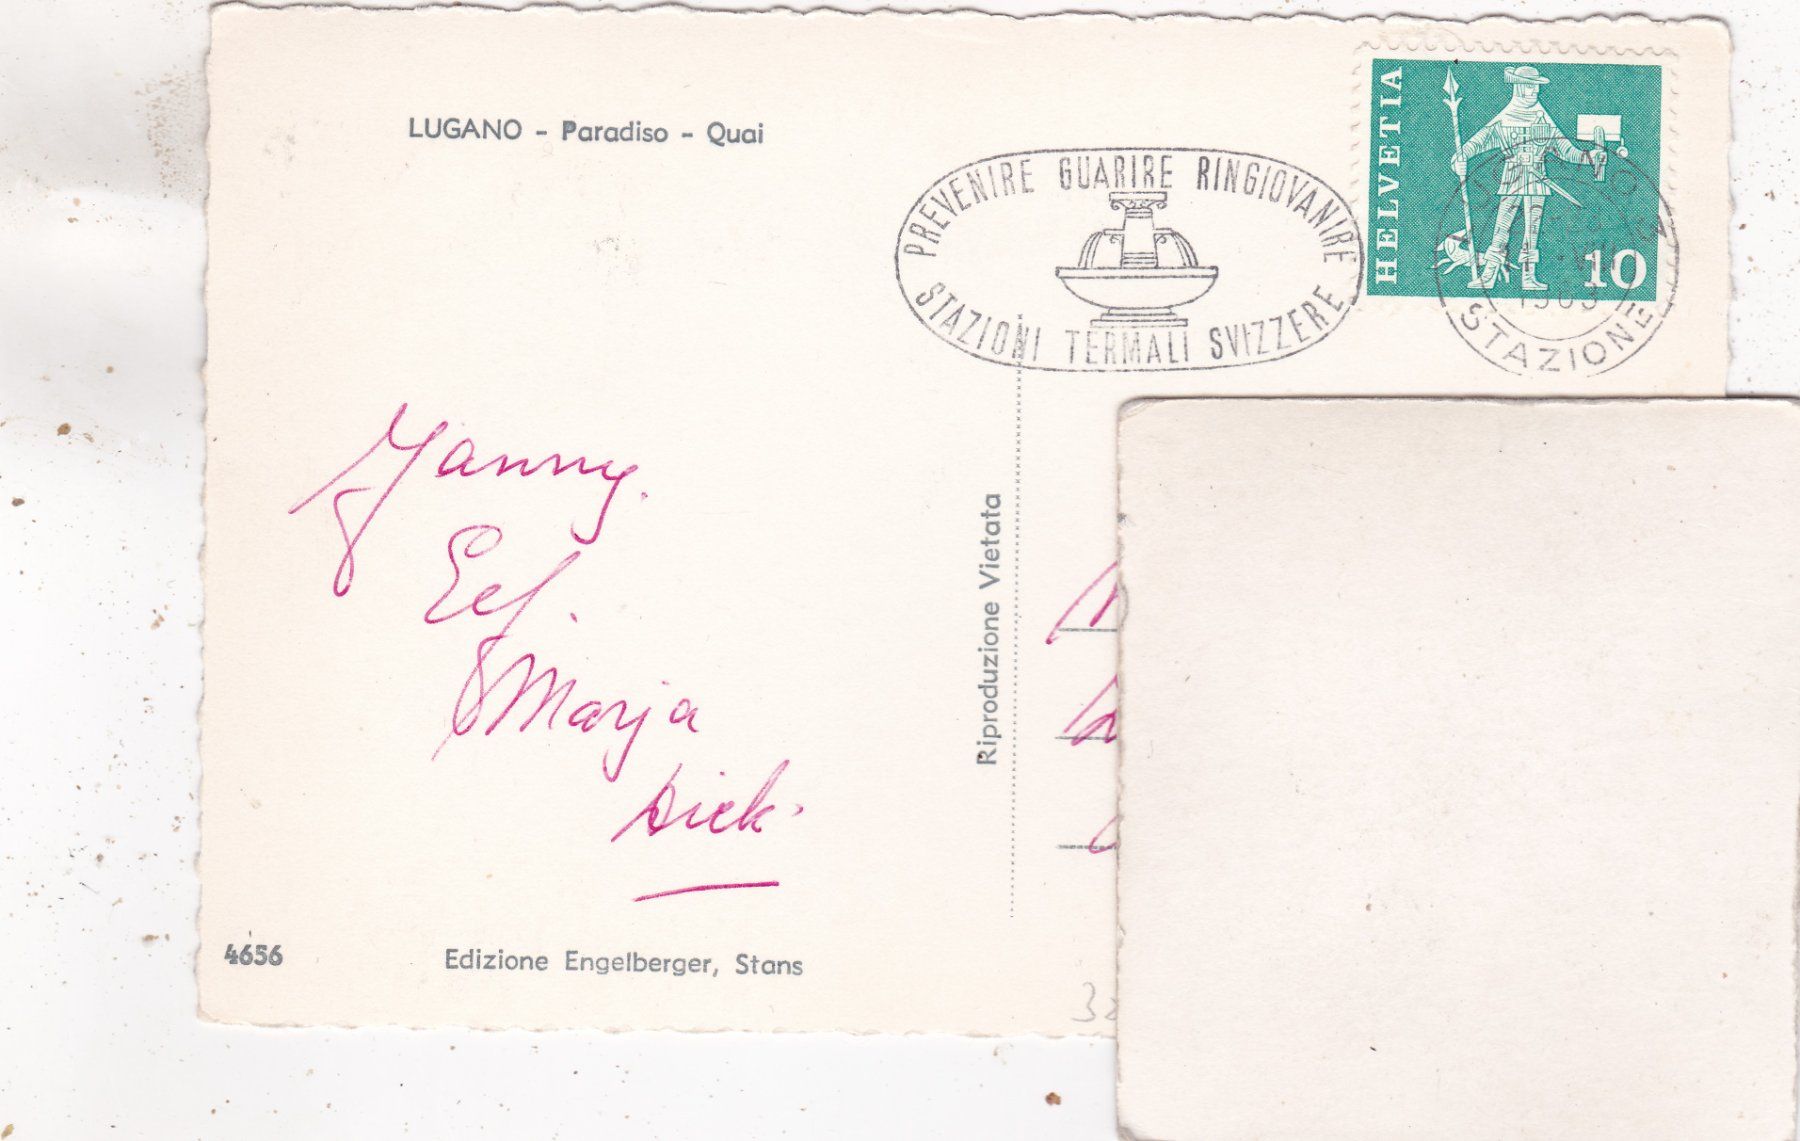 LUGANO - Paradiso - Quai
PREVENIRE GUARIRE RINGIOVANIRE
STAZIONI TERMALI SVIZZERE
HELVETIA
10
STAZIONE
Janny.
Eef.
Marja
Dick.
Riproduzione Vietata
4656
Edizione Engelberger, Stans